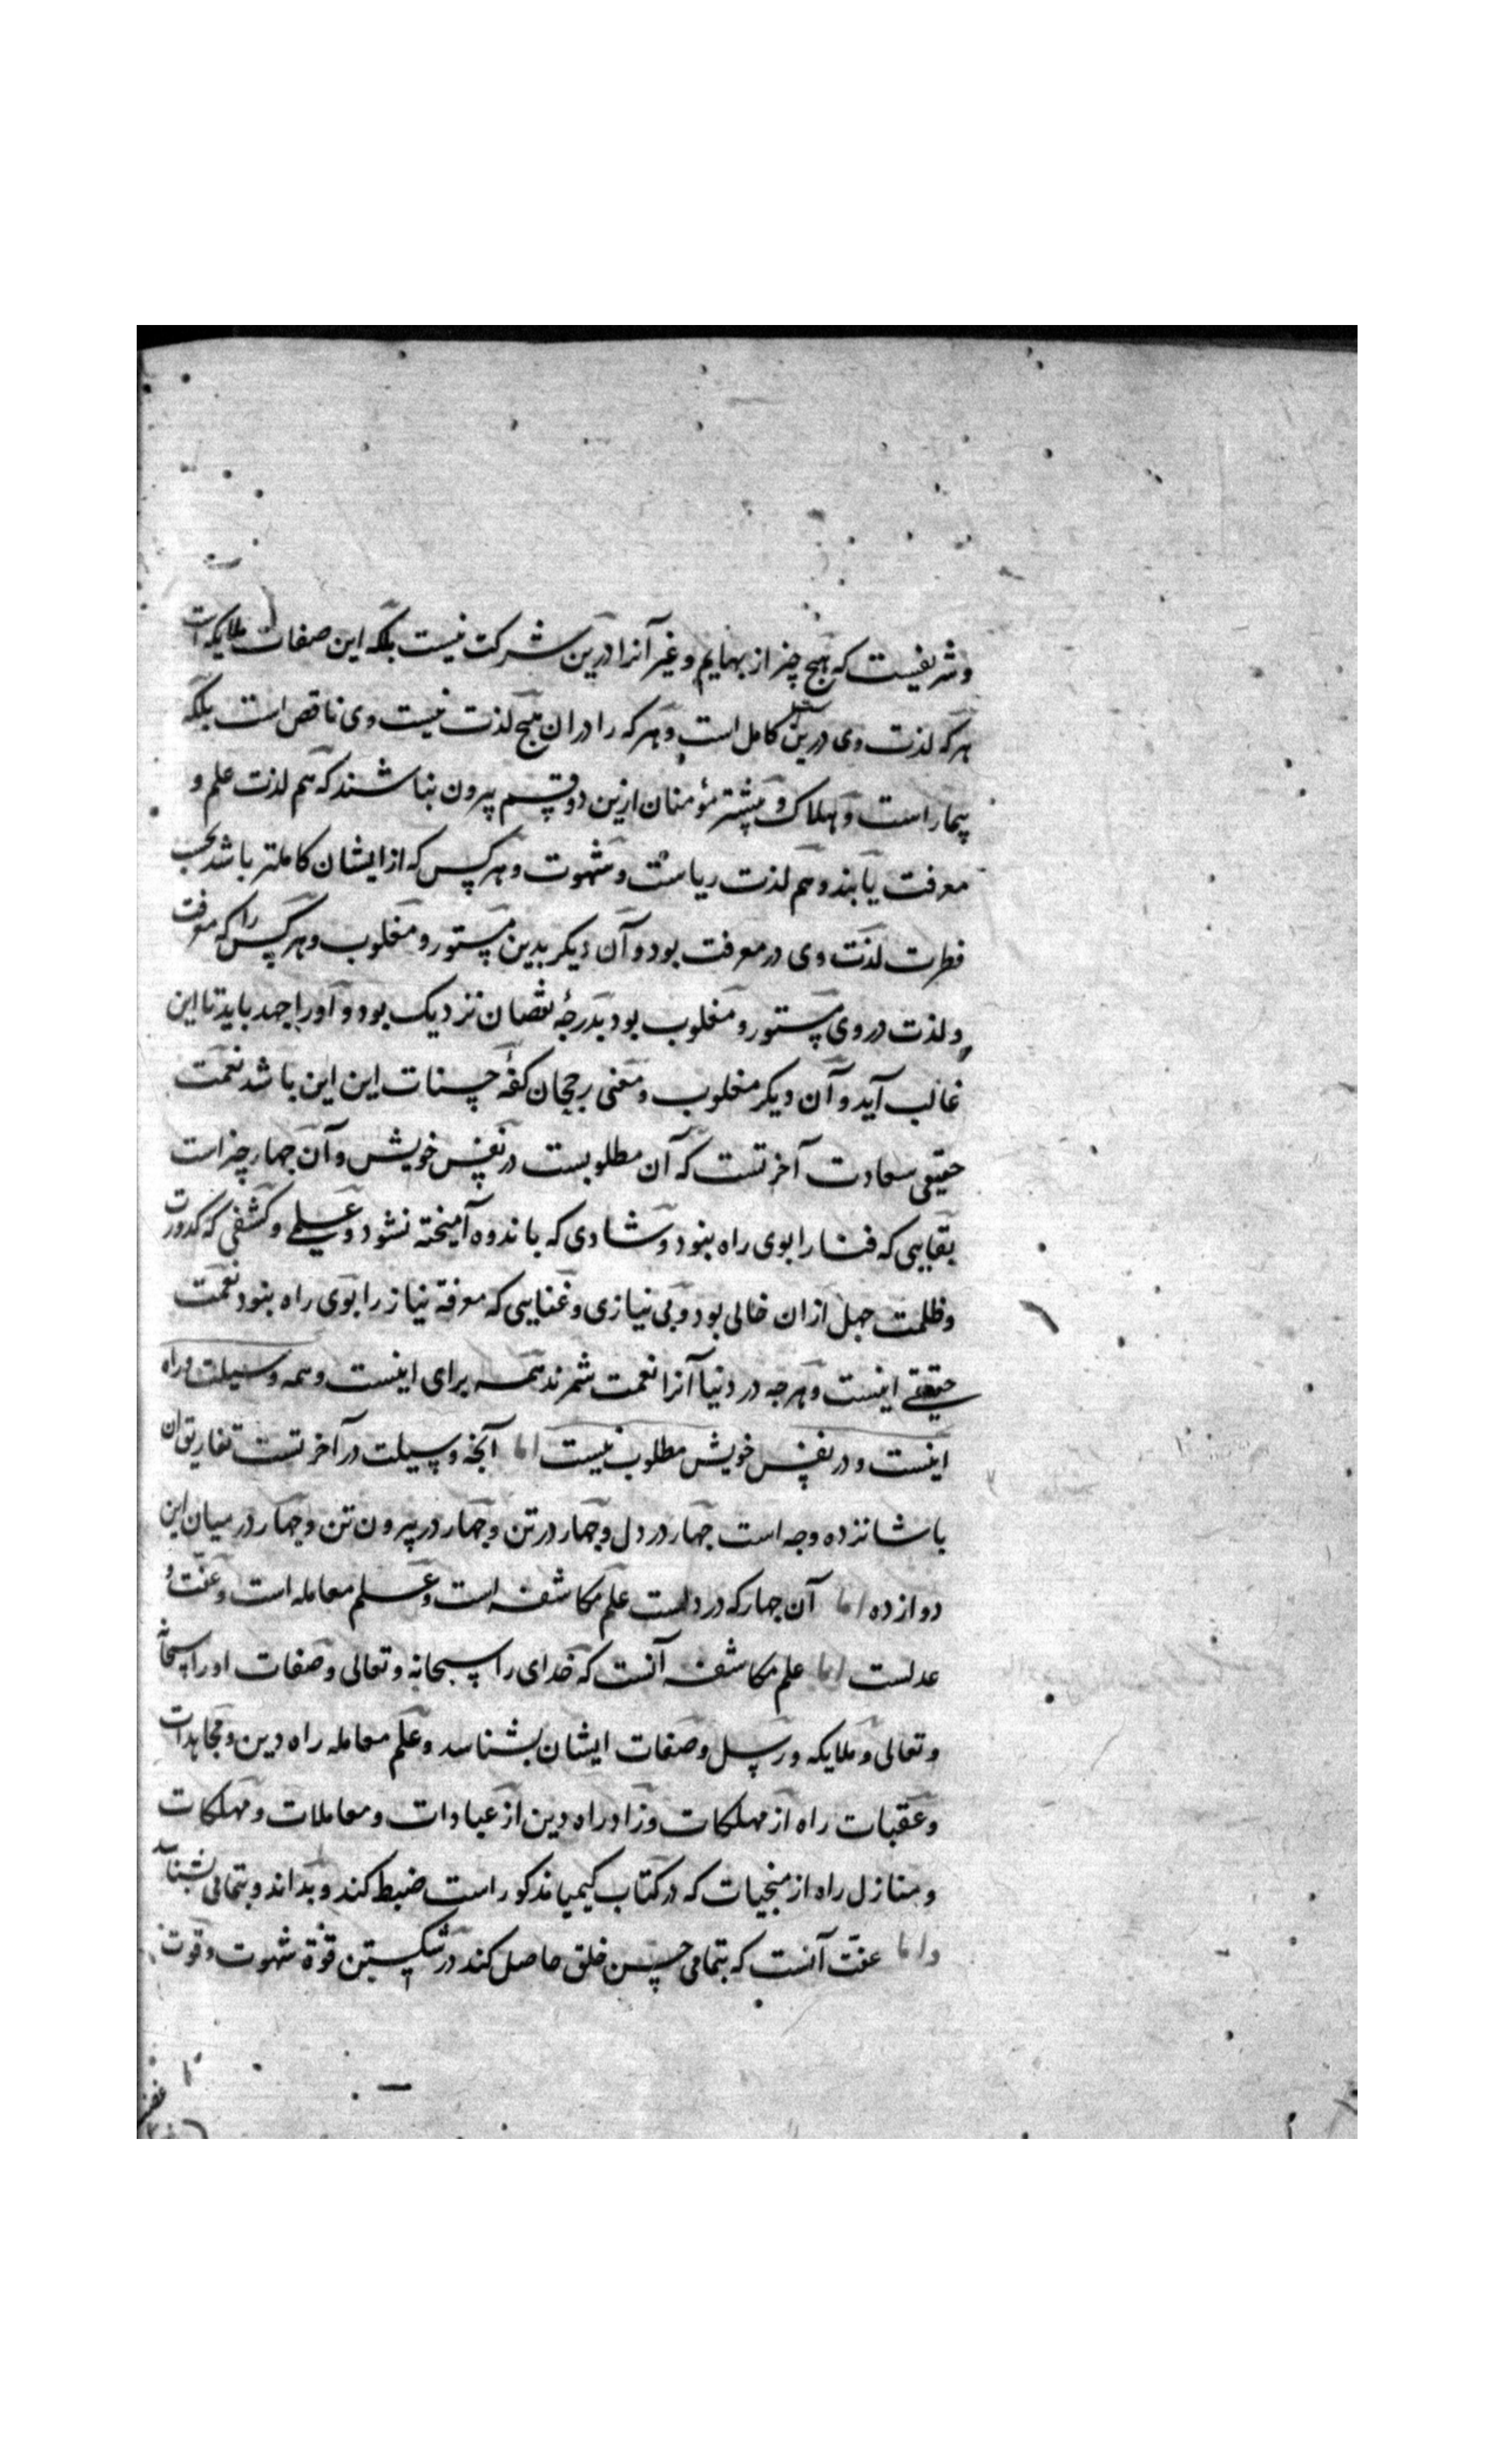 وشریفیست که هیچ چیز از بهایم و غیر آنرا درین شرکت نیست بلکه این صفات ملایکه است
هرکه لذت وی درین کامل است و هرکه را دران هیچ لذت نیست وی ناقص است بلکه
بیمار است و هلاک و بیشتر مؤمنان ازین دو قسم بیرون نباشند که هم لذت علم و
معرفت یابند و هم لذت ریاست و شهوت و هرکس که از ایشان کاملتر باشد بحسب
فطرت لذت وی در معرفت بود و آن دیکر بدین مستور و مغلوب و هرکس را که معرفت
و لذت در وی مستور و مغلوب بود بدرجهٔ نقصان نزدیک بود و اورا جهد باید تا این
غالب آید و آن دیکر مغلوب و معنی رجحان کفهٔ حسنات این این باشد نعمت
حقیقی سعادت آخرتست که آن مطلوبست در نفس خویش و آن چهار چیز است
بقایی که فنا را بوی راه نبود و شادی که باندوه آمیخته نشود و علمی و کشفی که کدورت
و ظلمت جهل ازان خالی بود و بی نیازی و غنایی که معرفة نیاز را بوی راه نبود نعمت
حقیقی اینست و هرچه در دنیا آنرا نعمت شمرند همه برای اینست و همه وسیلت و راه
اینست و در نفس خویش مطلوب نیست اما آنچه وسیلت در آخرتست تفاریق آن
با شانزده وجه است چهار در دل و چهار در تن و چهار در بیرون تن و چهار در میان این
دوازده اما آن چهار که در دلست علم مکاشفه است و علم معامله است و عفت و
عدلست اما علم مکاشفه آنست که خدای را سبحانه و تعالی و صفات او را سبحانه
و تعالی و ملایکه و رسل و صفات ایشان بشناسد و علم معامله راه دین و مجاهدات
و عقبات راه از مهلکات و زاد راه دین از عبادات و معاملات و مهلکات
و منازل راه از منجیات که در کتاب کیمیا مذکور است ضبط کند و بداند و بتمامی بشناسد
و اما عفت آنست که بتمامی حسن خلق حاصل کند در شکستن قوة شهوت و قوت